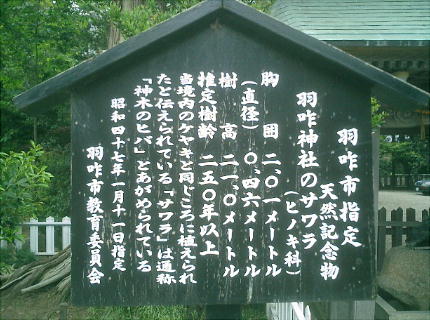 羽咋市指定
天然記念物
羽咋神社のサワラ
（ヒノキ科）
胸囲 二、〇一メートル
（直径） 〇、六四メートル
樹高 二一、〇メートル
推定樹齢 二五〇年以上
当境内のケヤキと同じころに植えられ
たと伝えられている「サワラ」は通称
「神木のヒバ」とあがめられている
昭和四十七年一月十一日指定
羽咋市教育委員会